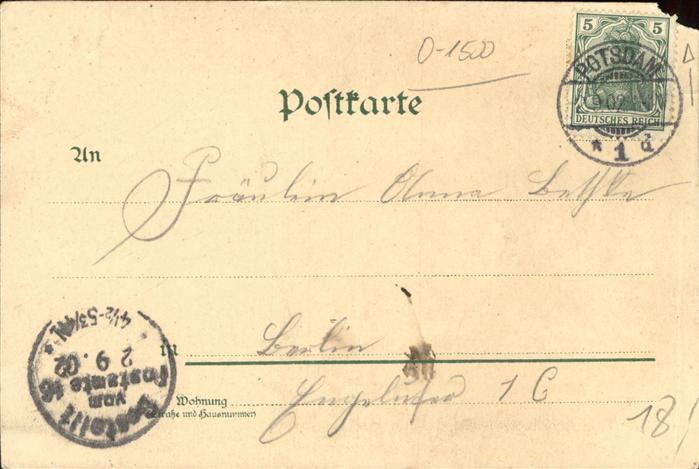 0-1500
5 5
DEUTSCHES REICH
POTSDAM
9.02
* 1 d
Postkarte
An
Fräulein Anna Bethke
in Berlin
Wohnung
(Straße und Hausnummer)
Engelufer 1 C
18/
Bestellt
vom
Postamte 16
2 9. 02
4½-5¾N